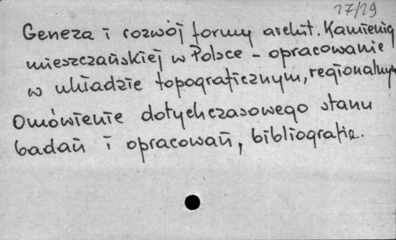 27/29
Geneza i rozwój formy archit. Kamienicy
mieszczańskiej w Polsce – opracowanie
w układzie topograficznym, regionalnym
Omówienie dotychczasowego stanu
badań i opracowań, bibliografia.